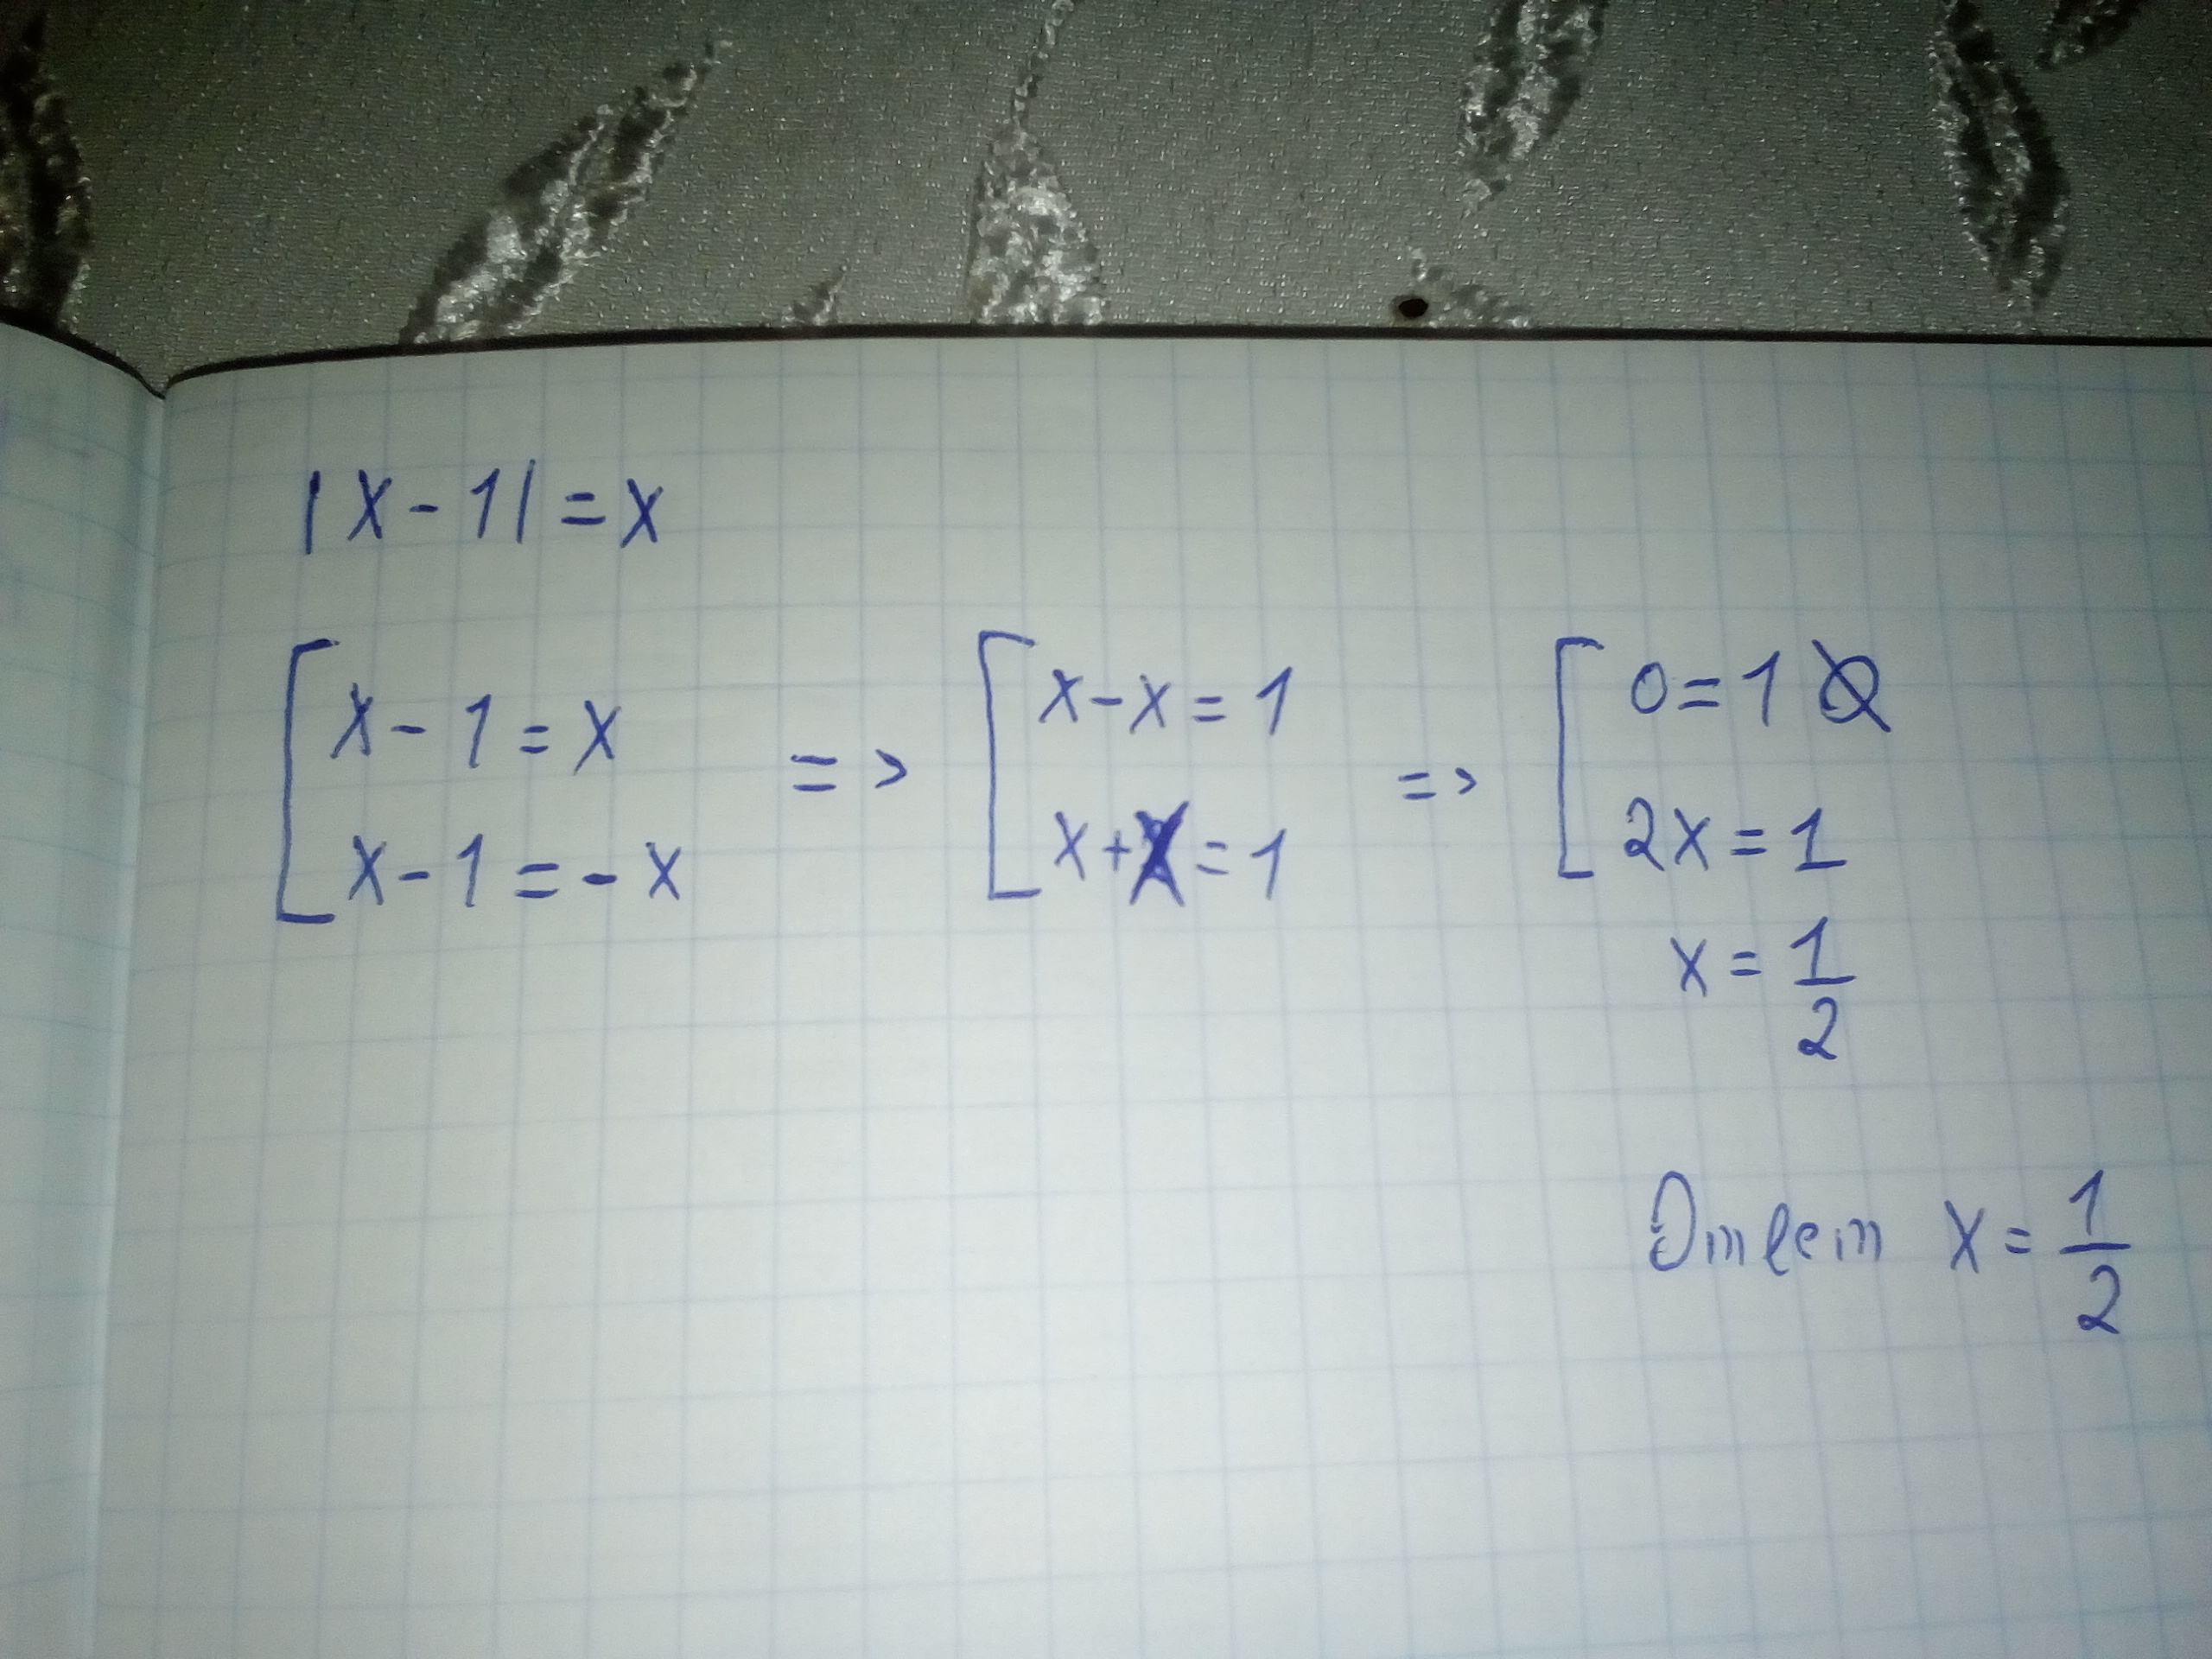 |x-1|=x
[ x-1=x => [ x-x=1 => [ 0=1 Ø
x-1=-x x+x=1 2x=1
x=1/2
Ответ x=1/2